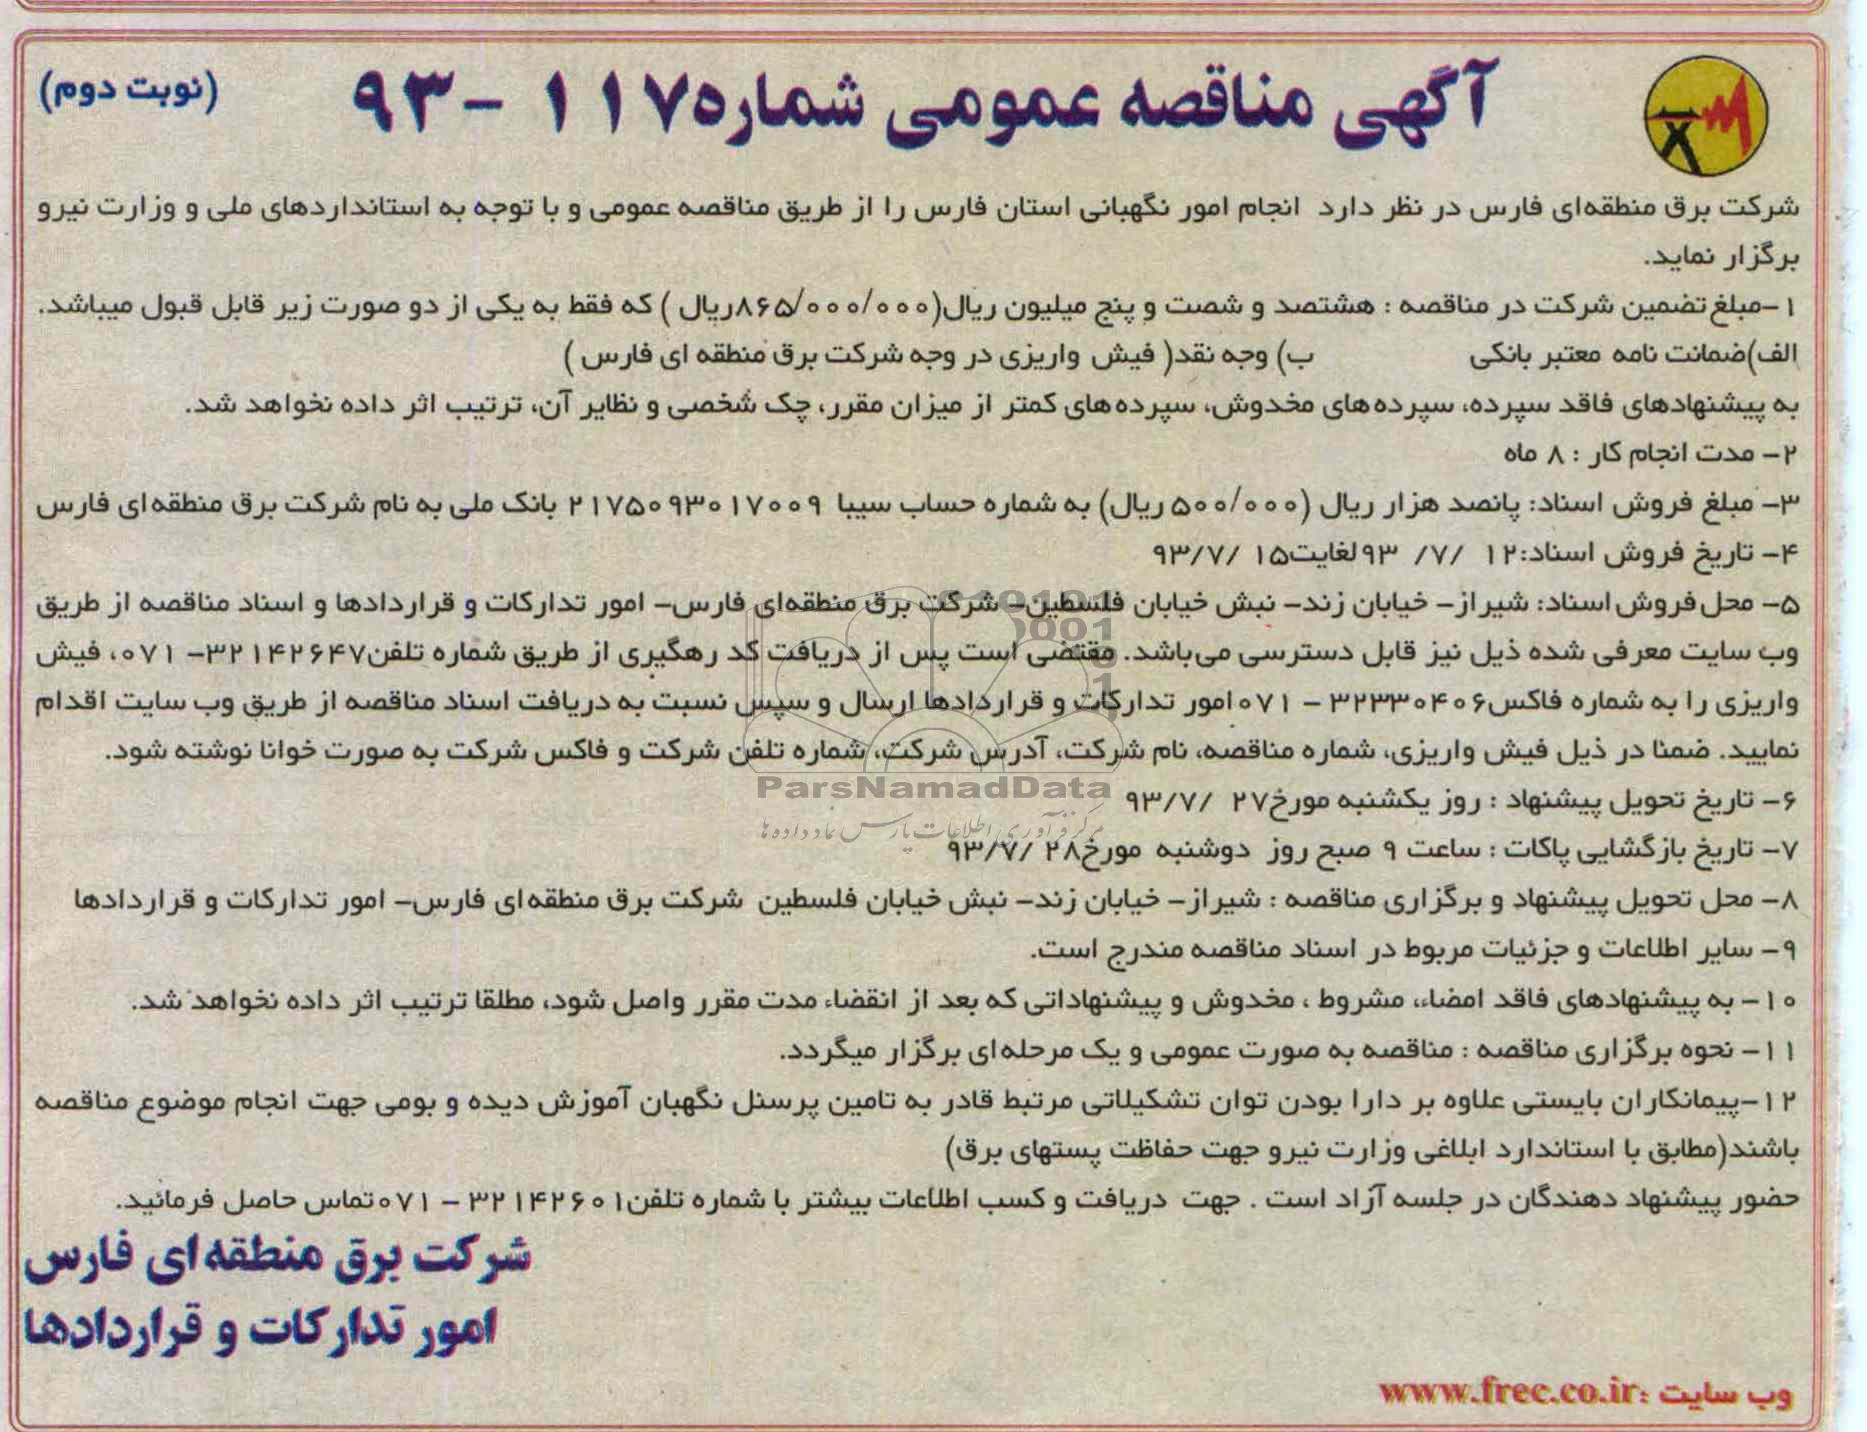 آگهی مناقصه عمومی شماره۱۱۷ -۹۳
(نوبت دوم)
شرکت برق منطقه‌ای فارس در نظر دارد انجام امور نگهبانی استان فارس را از طریق مناقصه عمومی و با توجه به استانداردهای ملی و وزارت نیرو
برگزار نماید.
۱-مبلغ تضمین شرکت در مناقصه : هشتصد و شصت و پنج میلیون ریال(۸۶۵/۰۰۰/۰۰۰ریال ) که فقط به یکی از دو صورت زیر قابل قبول میباشد.
الف)ضمانت نامه معتبر بانکی ب) وجه نقد( فیش واریزی در وجه شرکت برق منطقه ای فارس )
به پیشنهادهای فاقد سپرده، سپرده‌های مخدوش، سپرده‌های کمتر از میزان مقرر، چک شخصی و نظایر آن، ترتیب اثر داده نخواهد شد.
۲- مدت انجام کار : ۸ ماه
۳- مبلغ فروش اسناد: پانصد هزار ریال (۵۰۰/۰۰۰ریال) به شماره حساب سیبا ۲۱۷۵۰۹۳۰۱۷۰۰۹ بانک ملی به نام شرکت برق منطقه‌ای فارس
۴- تاریخ فروش اسناد:۱۲ /۷/ ۹۳لغایت۱۵ /۹۳/۷
۵- محل فروش اسناد: شیراز- خیابان زند- نبش خیابان فلسطین- شرکت برق منطقه‌ای فارس- امور تدارکات و قراردادها و اسناد مناقصه از طریق
وب سایت معرفی شده ذیل نیز قابل دسترسی می‌باشد. مقتضی است پس از دریافت کد رهگیری از طریق شماره تلفن۳۲۱۴۲۶۴۷- ۰۷۱، فیش
واریزی را به شماره فاکس۳۲۳۳۰۴۰۶ - ۰۷۱امور تدارکات و قراردادها ارسال و سپس نسبت به دریافت اسناد مناقصه از طریق وب سایت اقدام
نمایید. ضمنا در ذیل فیش واریزی، شماره مناقصه، نام شرکت، آدرس شرکت، شماره تلفن شرکت و فاکس شرکت به صورت خوانا نوشته شود.
ParsNamadData
۶- تاریخ تحویل پیشنهاد : روز یکشنبه مورخ۲۷ /۹۳/۷
مرکز فرآوری اطلاعات پارس نماد داده ها
۷- تاریخ بازگشایی پاکات : ساعت ۹ صبح روز دوشنبه مورخ۲۸ /۹۳/۷
۸- محل تحویل پیشنهاد و برگزاری مناقصه : شیراز- خیابان زند- نبش خیابان فلسطین شرکت برق منطقه‌ای فارس- امور تدارکات و قراردادها
۹- سایر اطلاعات و جزئیات مربوط در اسناد مناقصه مندرج است.
۱۰- به پیشنهادهای فاقد امضاء، مشروط ، مخدوش و پیشنهاداتی که بعد از انقضاء مدت مقرر واصل شود، مطلقا ترتیب اثر داده نخواهد شد.
۱۱- نحوه برگزاری مناقصه : مناقصه به صورت عمومی و یک مرحله‌ای برگزار میگردد.
۱۲-پیمانکاران بایستی علاوه بر دارا بودن توان تشکیلاتی مرتبط قادر به تامین پرسنل نگهبان آموزش دیده و بومی جهت انجام موضوع مناقصه
باشند(مطابق با استاندارد ابلاغی وزارت نیرو جهت حفاظت پستهای برق)
حضور پیشنهاد دهندگان در جلسه آزاد است . جهت دریافت و کسب اطلاعات بیشتر با شماره تلفن۳۲۱۴۲۶۰۱ - ۰۷۱تماس حاصل فرمائید.
شرکت برق منطقه‌ای فارس
امور تدارکات و قراردادها
وب سایت :www.frec.co.ir